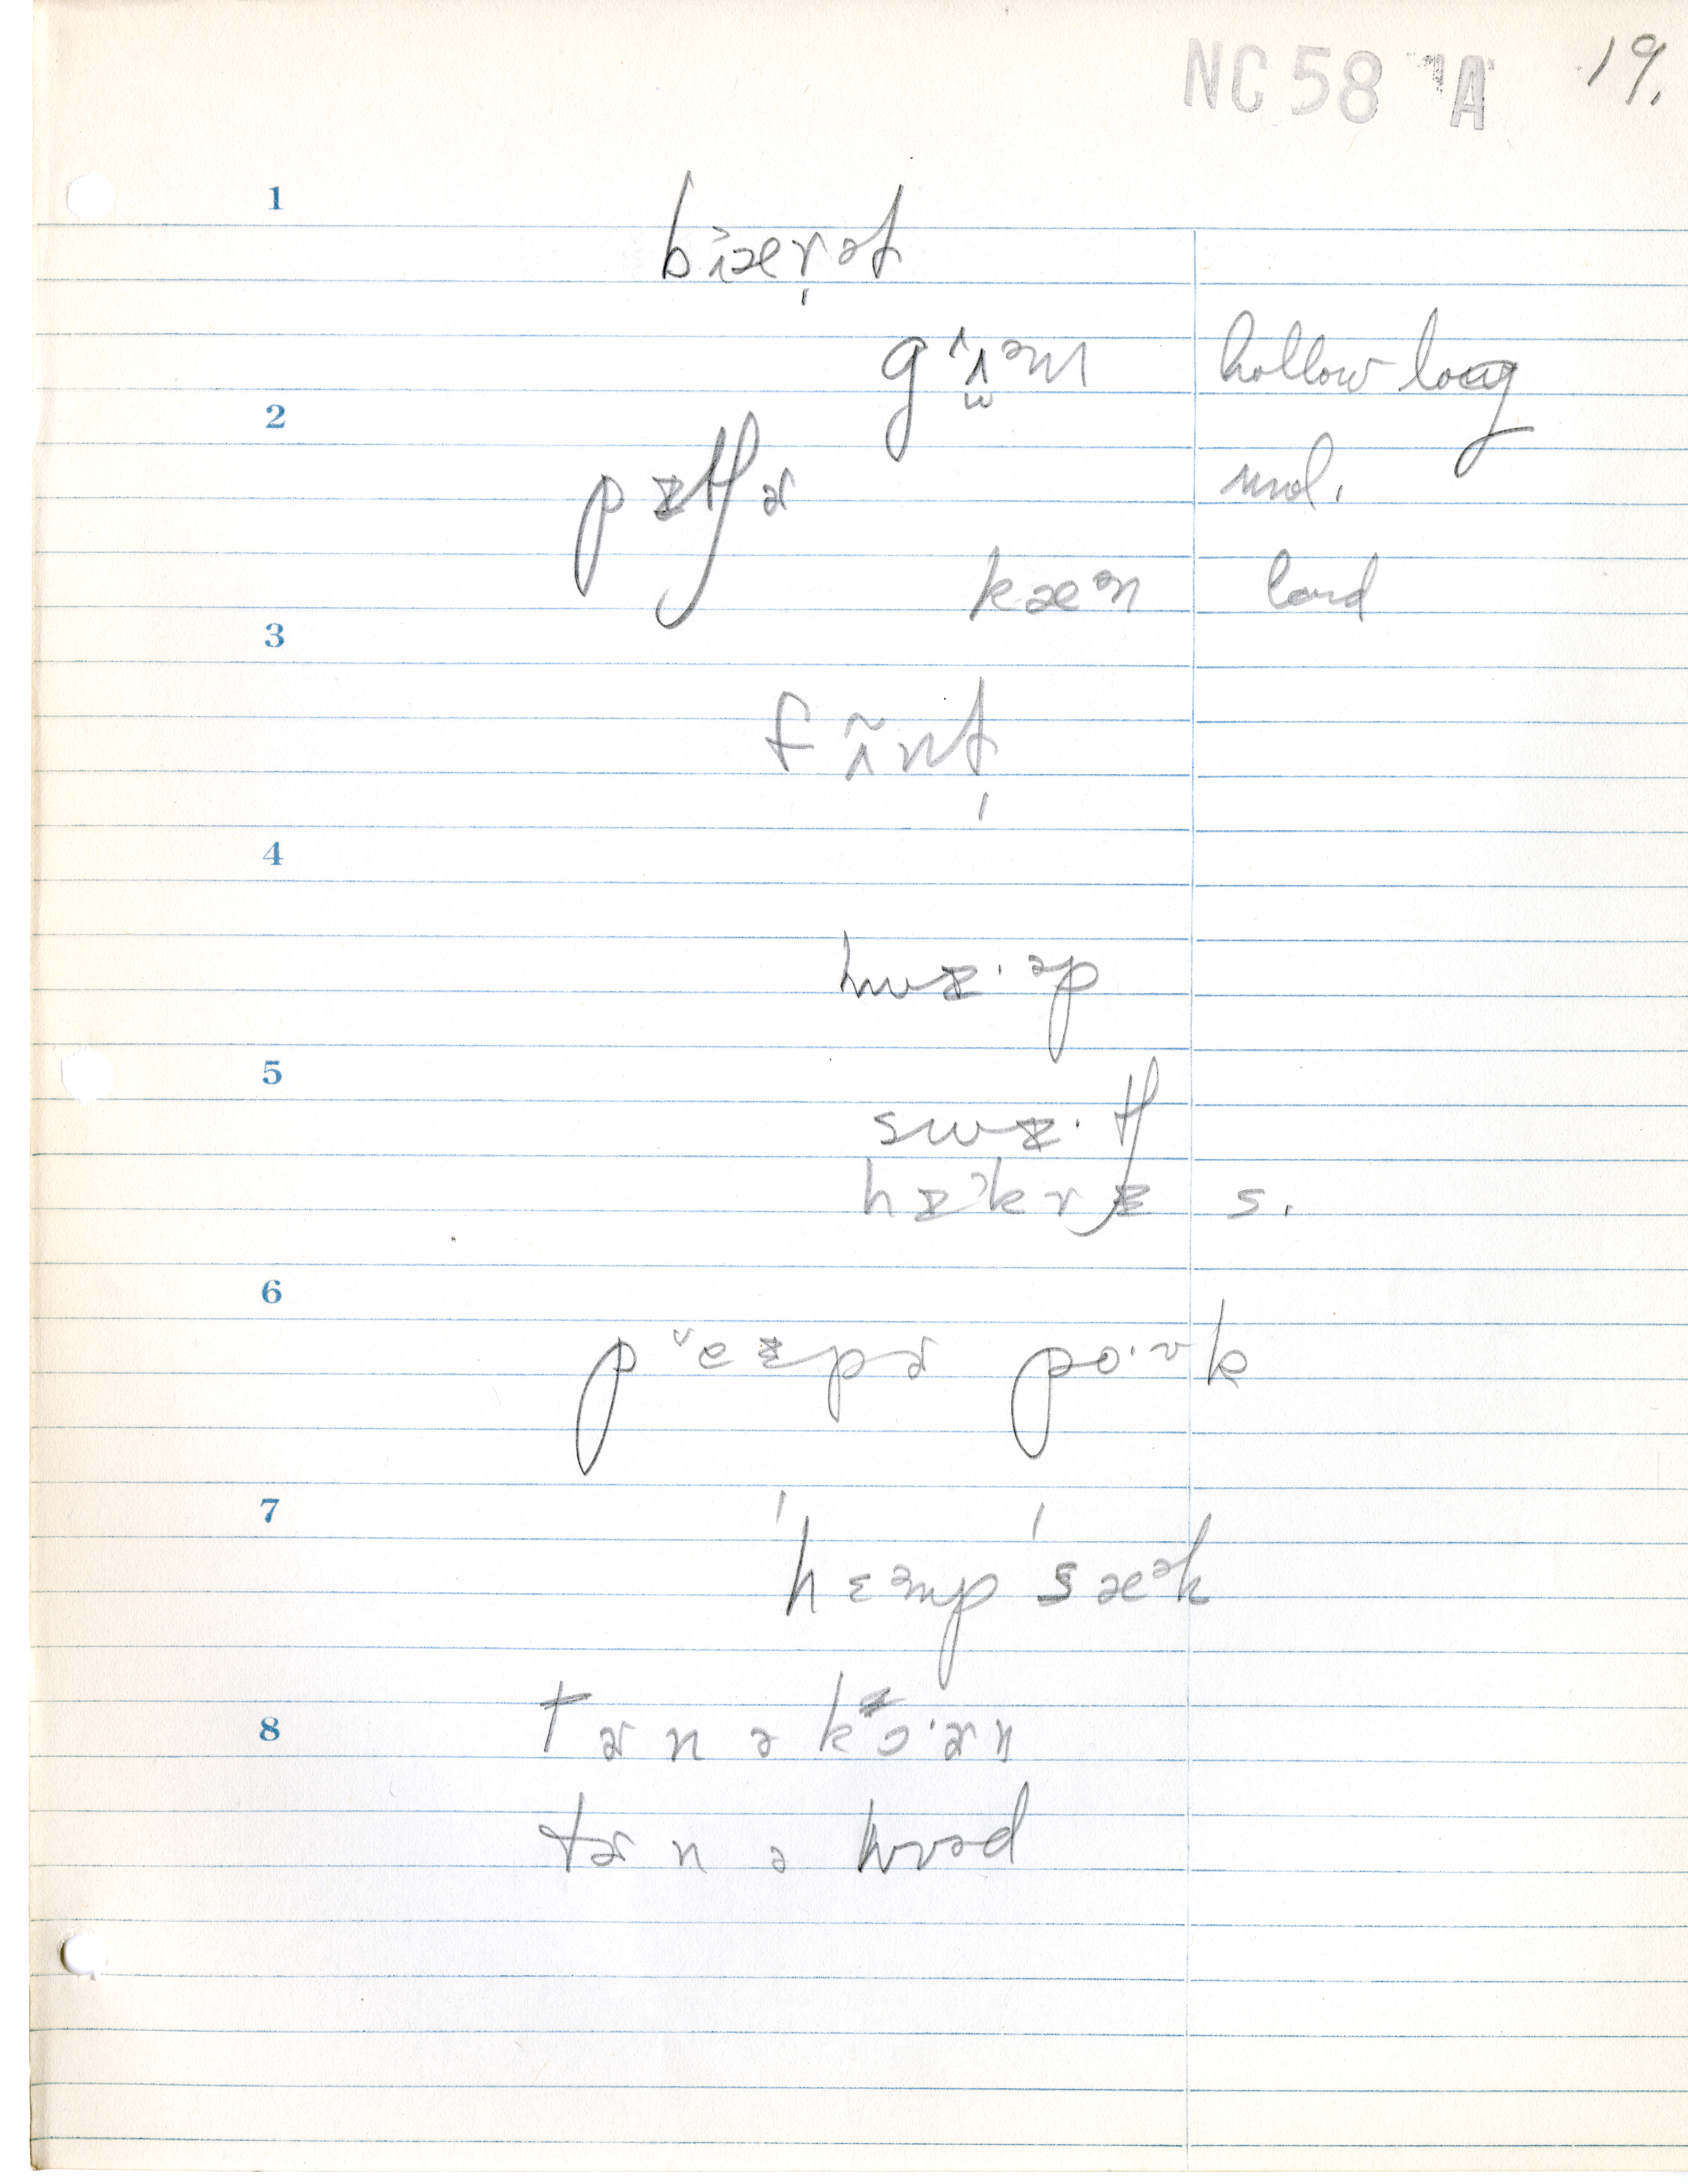 NC 58 A 19.
1
bɪ̯ærət
gʌ̃əm hollow log
2
pɪtʃɚ mol.
kæən lard
3
fʌ̃nt
4
hwɪ·əp
5
swɪ·tʃ
hɪkrɪ s.
6
peɪpɚ po·ʊk
7
ˈhɛəmpˈsæək
8
tɚn ə kɔ·ɚn
tɚn ə wʊəd